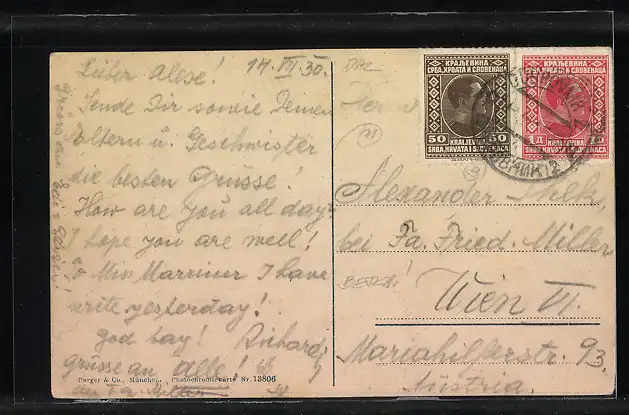 Lieber Alese!
17.VII.30.
Sende Dir sowie Deinen
Eltern u. Geschwister
die besten Grüsse!
How are you all day
I hope you are well!
To Miss Marriner I have
write yesterday!
god bay! Richard
Grüsse an alle!
Purger & Co., München. Photochromiekarte Nr. 13806
КРАЉЕВИНА
СРБА, ХРВАТА И СЛОВЕНАЦА
50 50
KRALJEVINA
SRBA, HRVATA I SLOVENACA
КРАЉЕВИНА
СРБА, ХРВАТА И СЛОВЕНАЦА
1 Д
KRALJEVINA
SRBA, HRVATA I SLOVENACA
DUBROVNIK 2
ДУБРОВНИК 2
Alexander
bei Fa. Fried. Miller
Wien VI.
Mariahilferstr. 93
Austria.